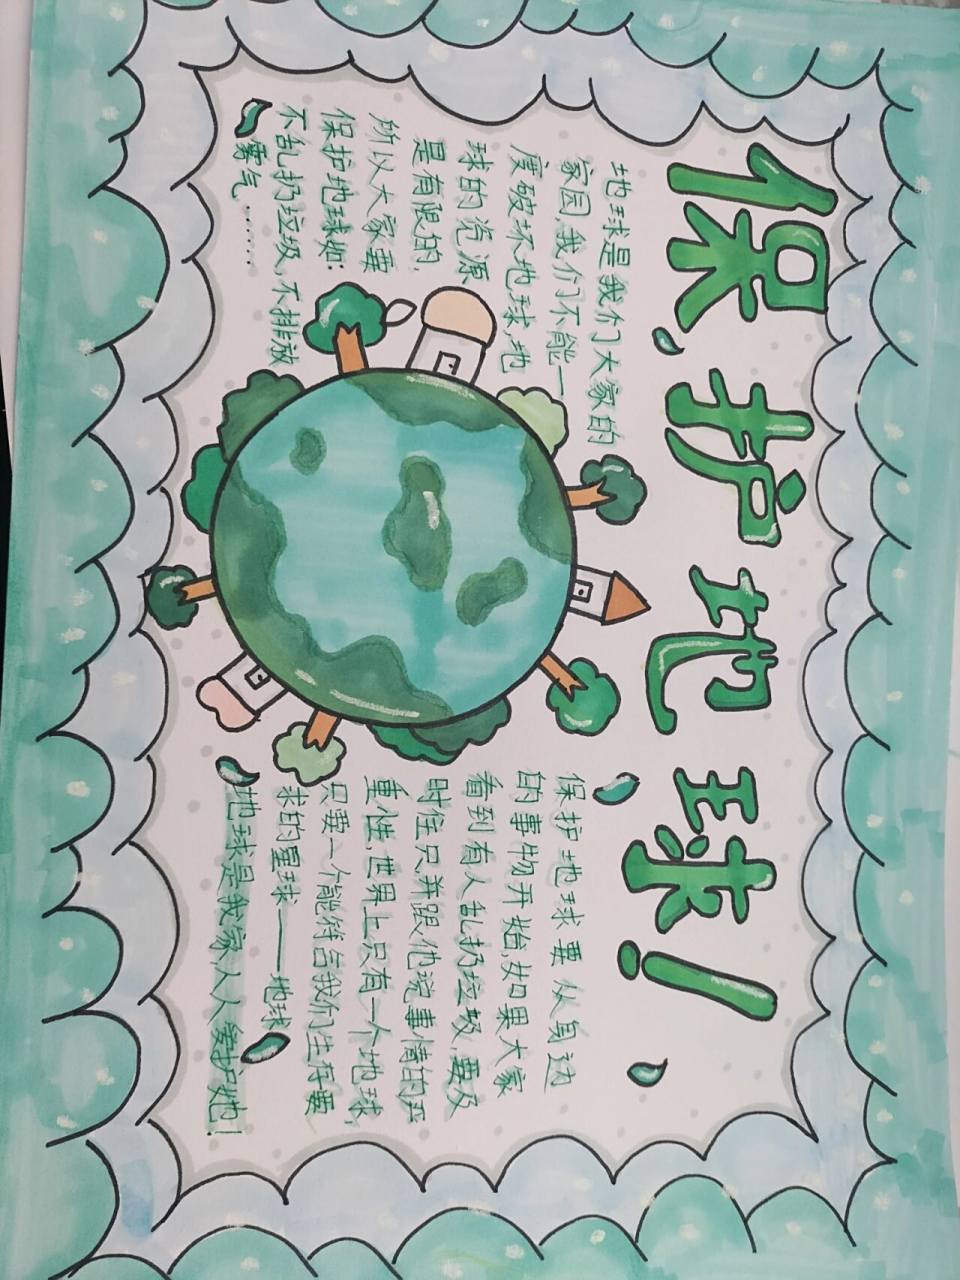 保护地球！
地球是我们大家的
家园,我们不能一
度破坏地球,地
球的资源
是有限的,
所以大家要
保护地球如:
不乱扔垃圾,不排放
雾气……
保护地球要从身边
的事物开始,如果大家
看到有人乱扔垃圾,要及
时住只,并跟他说事情的严
重性,世界上只有一个地球,
只要一个能符合我们生存要
求的星球——地球
地球是我家人人爱护她！